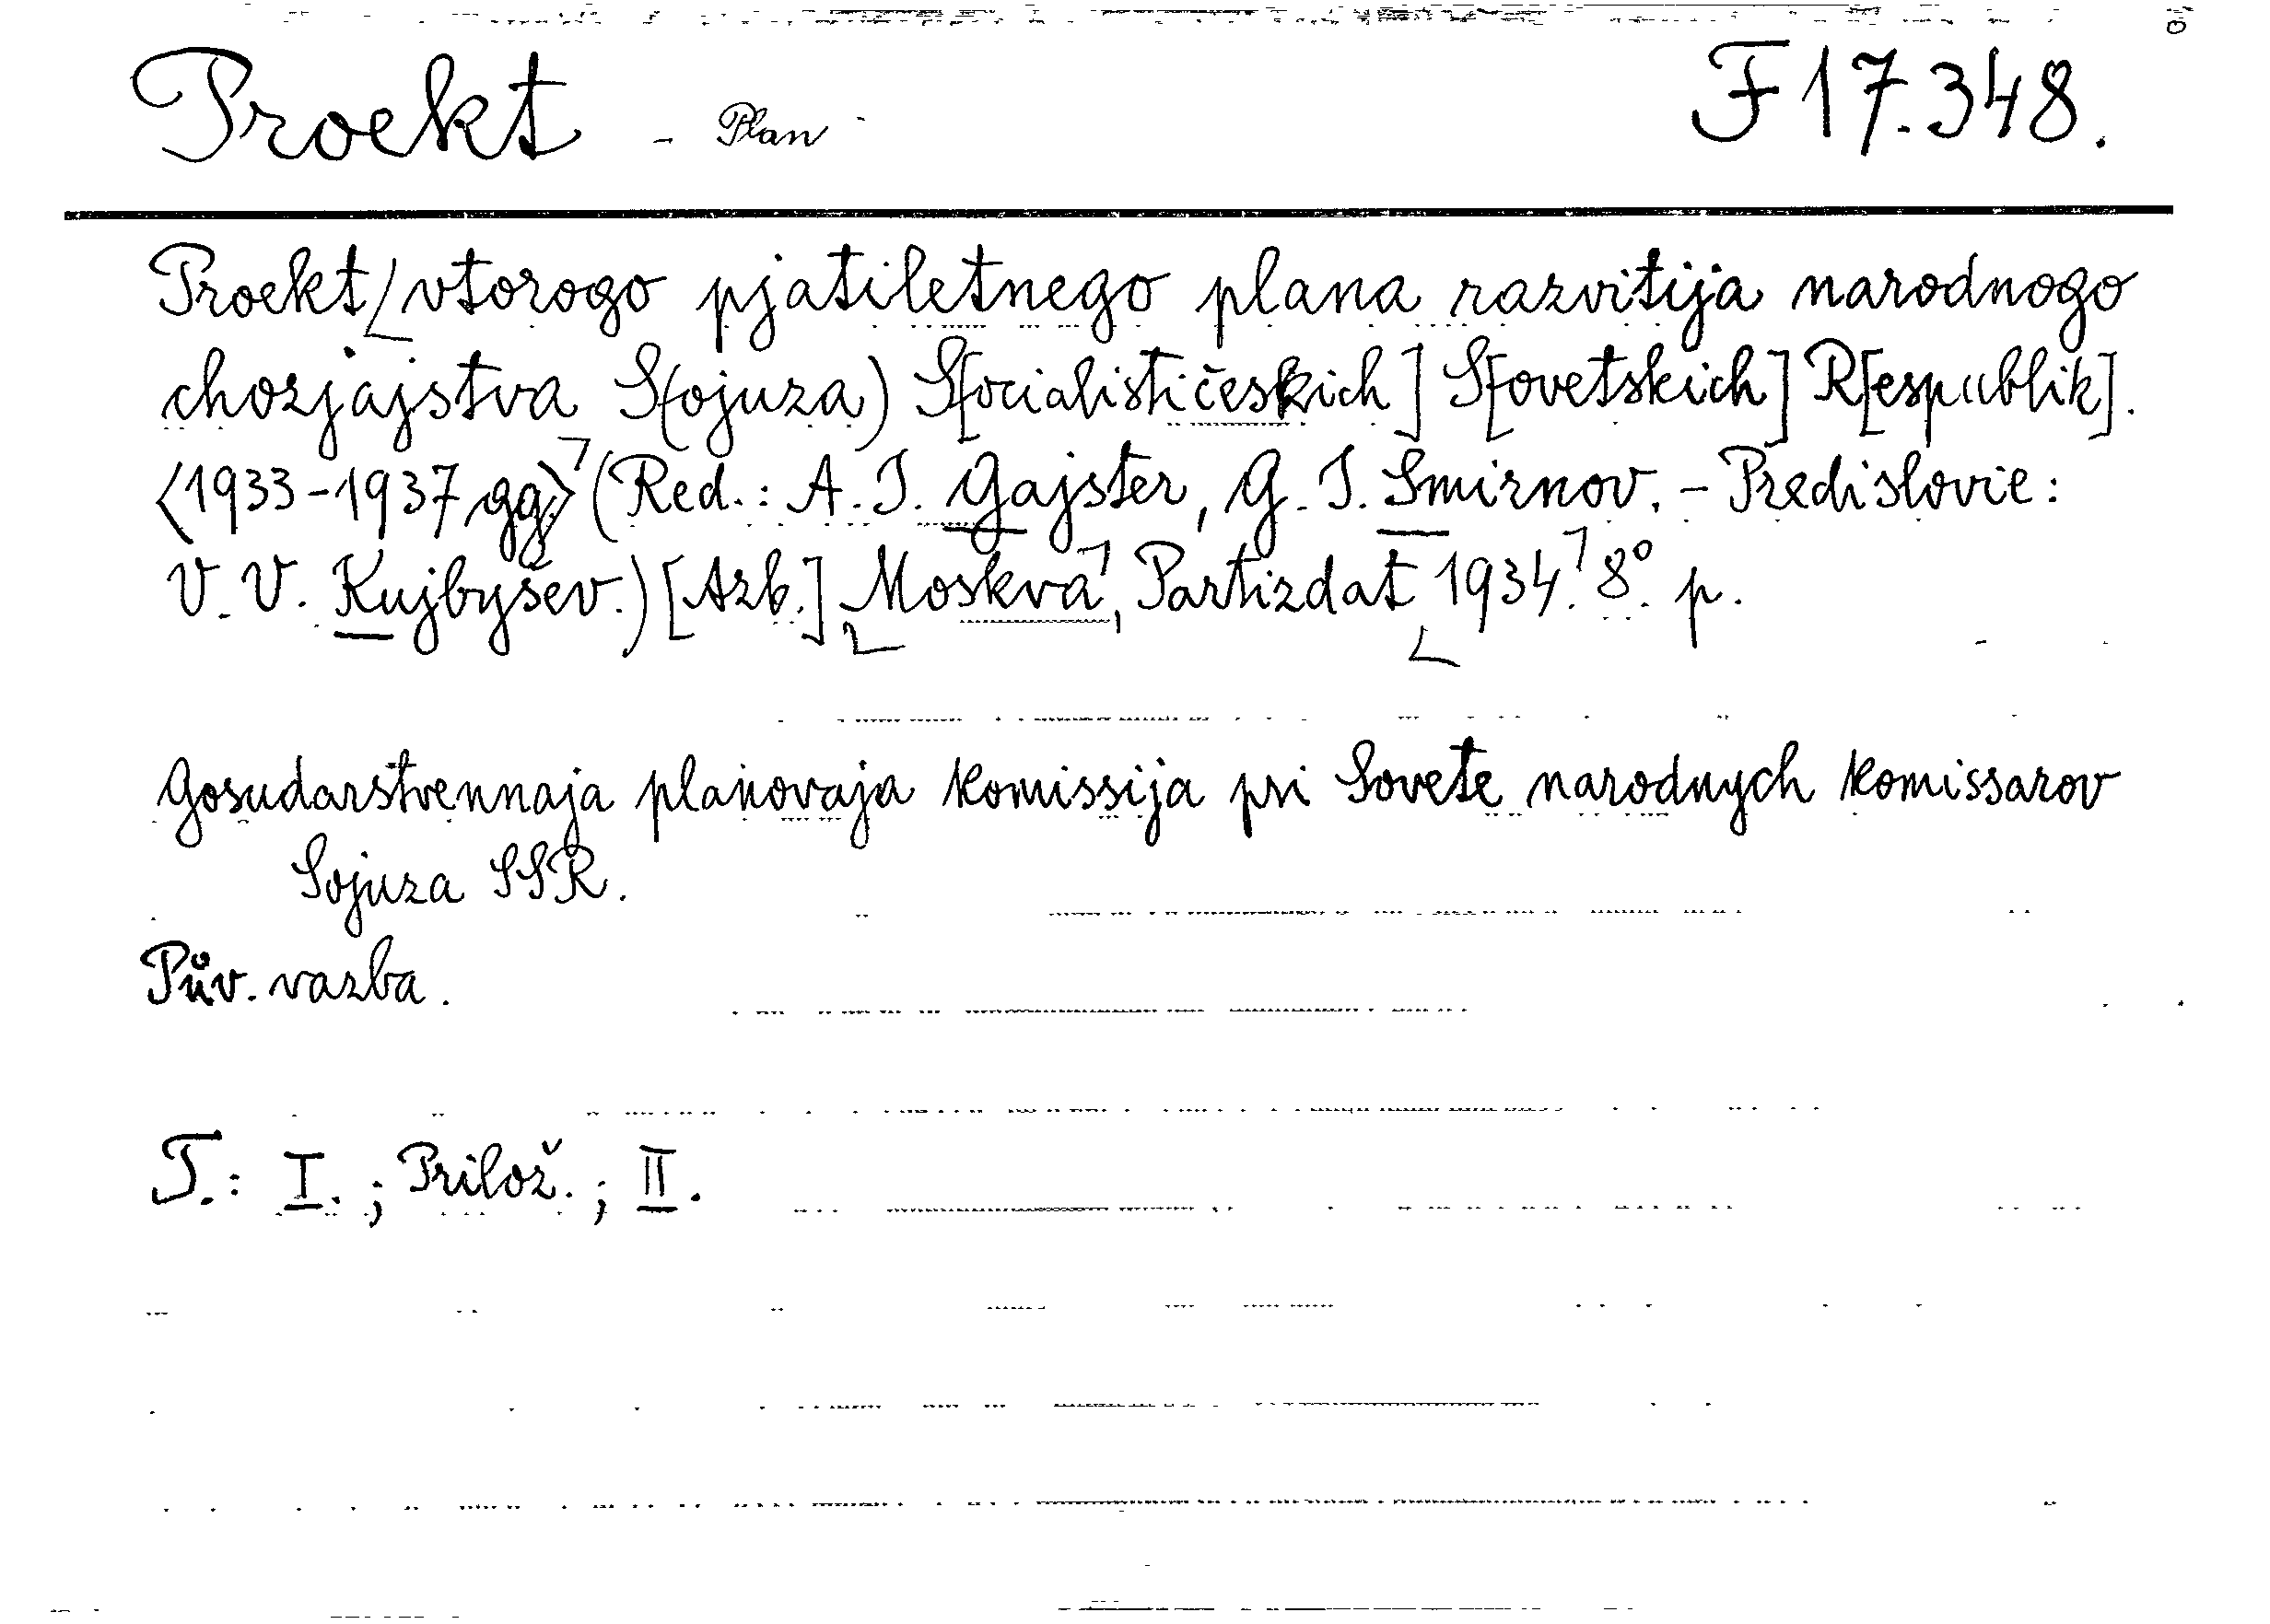 Proekt - Plan - F 17.348.
Proekt vtorogo pjatiletnego plana razvitija narodnogo
chozjajstva S(ojuza) S[ocialističeskich] S[ovetskich] R[espublik].
<1933-1937 gg.> (Red.: A. I. Gajster, G. I. Smirnov. - Predislovie:
V. V. Kujbyšev.) [Azb.] Moskva, Partizdat 1934. 8°. p.
Gosudarstvennaja planovaja komissija pri Sovete narodnych komissarov
Sojuza SSR.
Pův. vazba.
T.: I. ; Prilož. ; II.